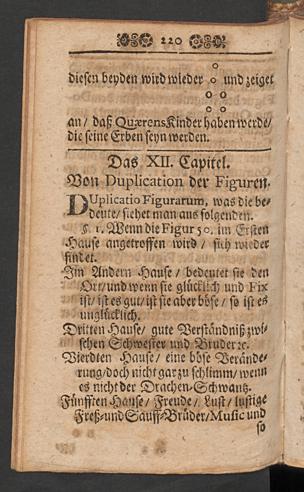 220
diesen beyden wird wieder und zeiget
an / daß Quærens Kinder haben werde /
die seine Erben seyn werden.
Das XII. Capitel.
Von Duplication der Figuren.
DUplicatio Figurarum, was die be-
deute / siehet man aus folgenden.
§ 1. Wenn die Figur 50. im Ersten
Hause angetroffen wird / sich wieder
findet.
Im Andern Hause / bedeutet sie den
Ort / und wenn sie glücklich und Fix
ist / ist es gut / ist sie aber böse / so ist es
unglücklich.
Dritten Hause / gute Verständniß zwi-
schen Schwester und Bruder ꝛc.
Vierdten Hause / eine böse Verände-
rung / doch nicht gar zu schlimm / wenn
es nicht der Drachen-Schwantz.
Fünfften Hause / Freude / Lust / lustige
Freß- und Sauff-Brüder / Music und
so